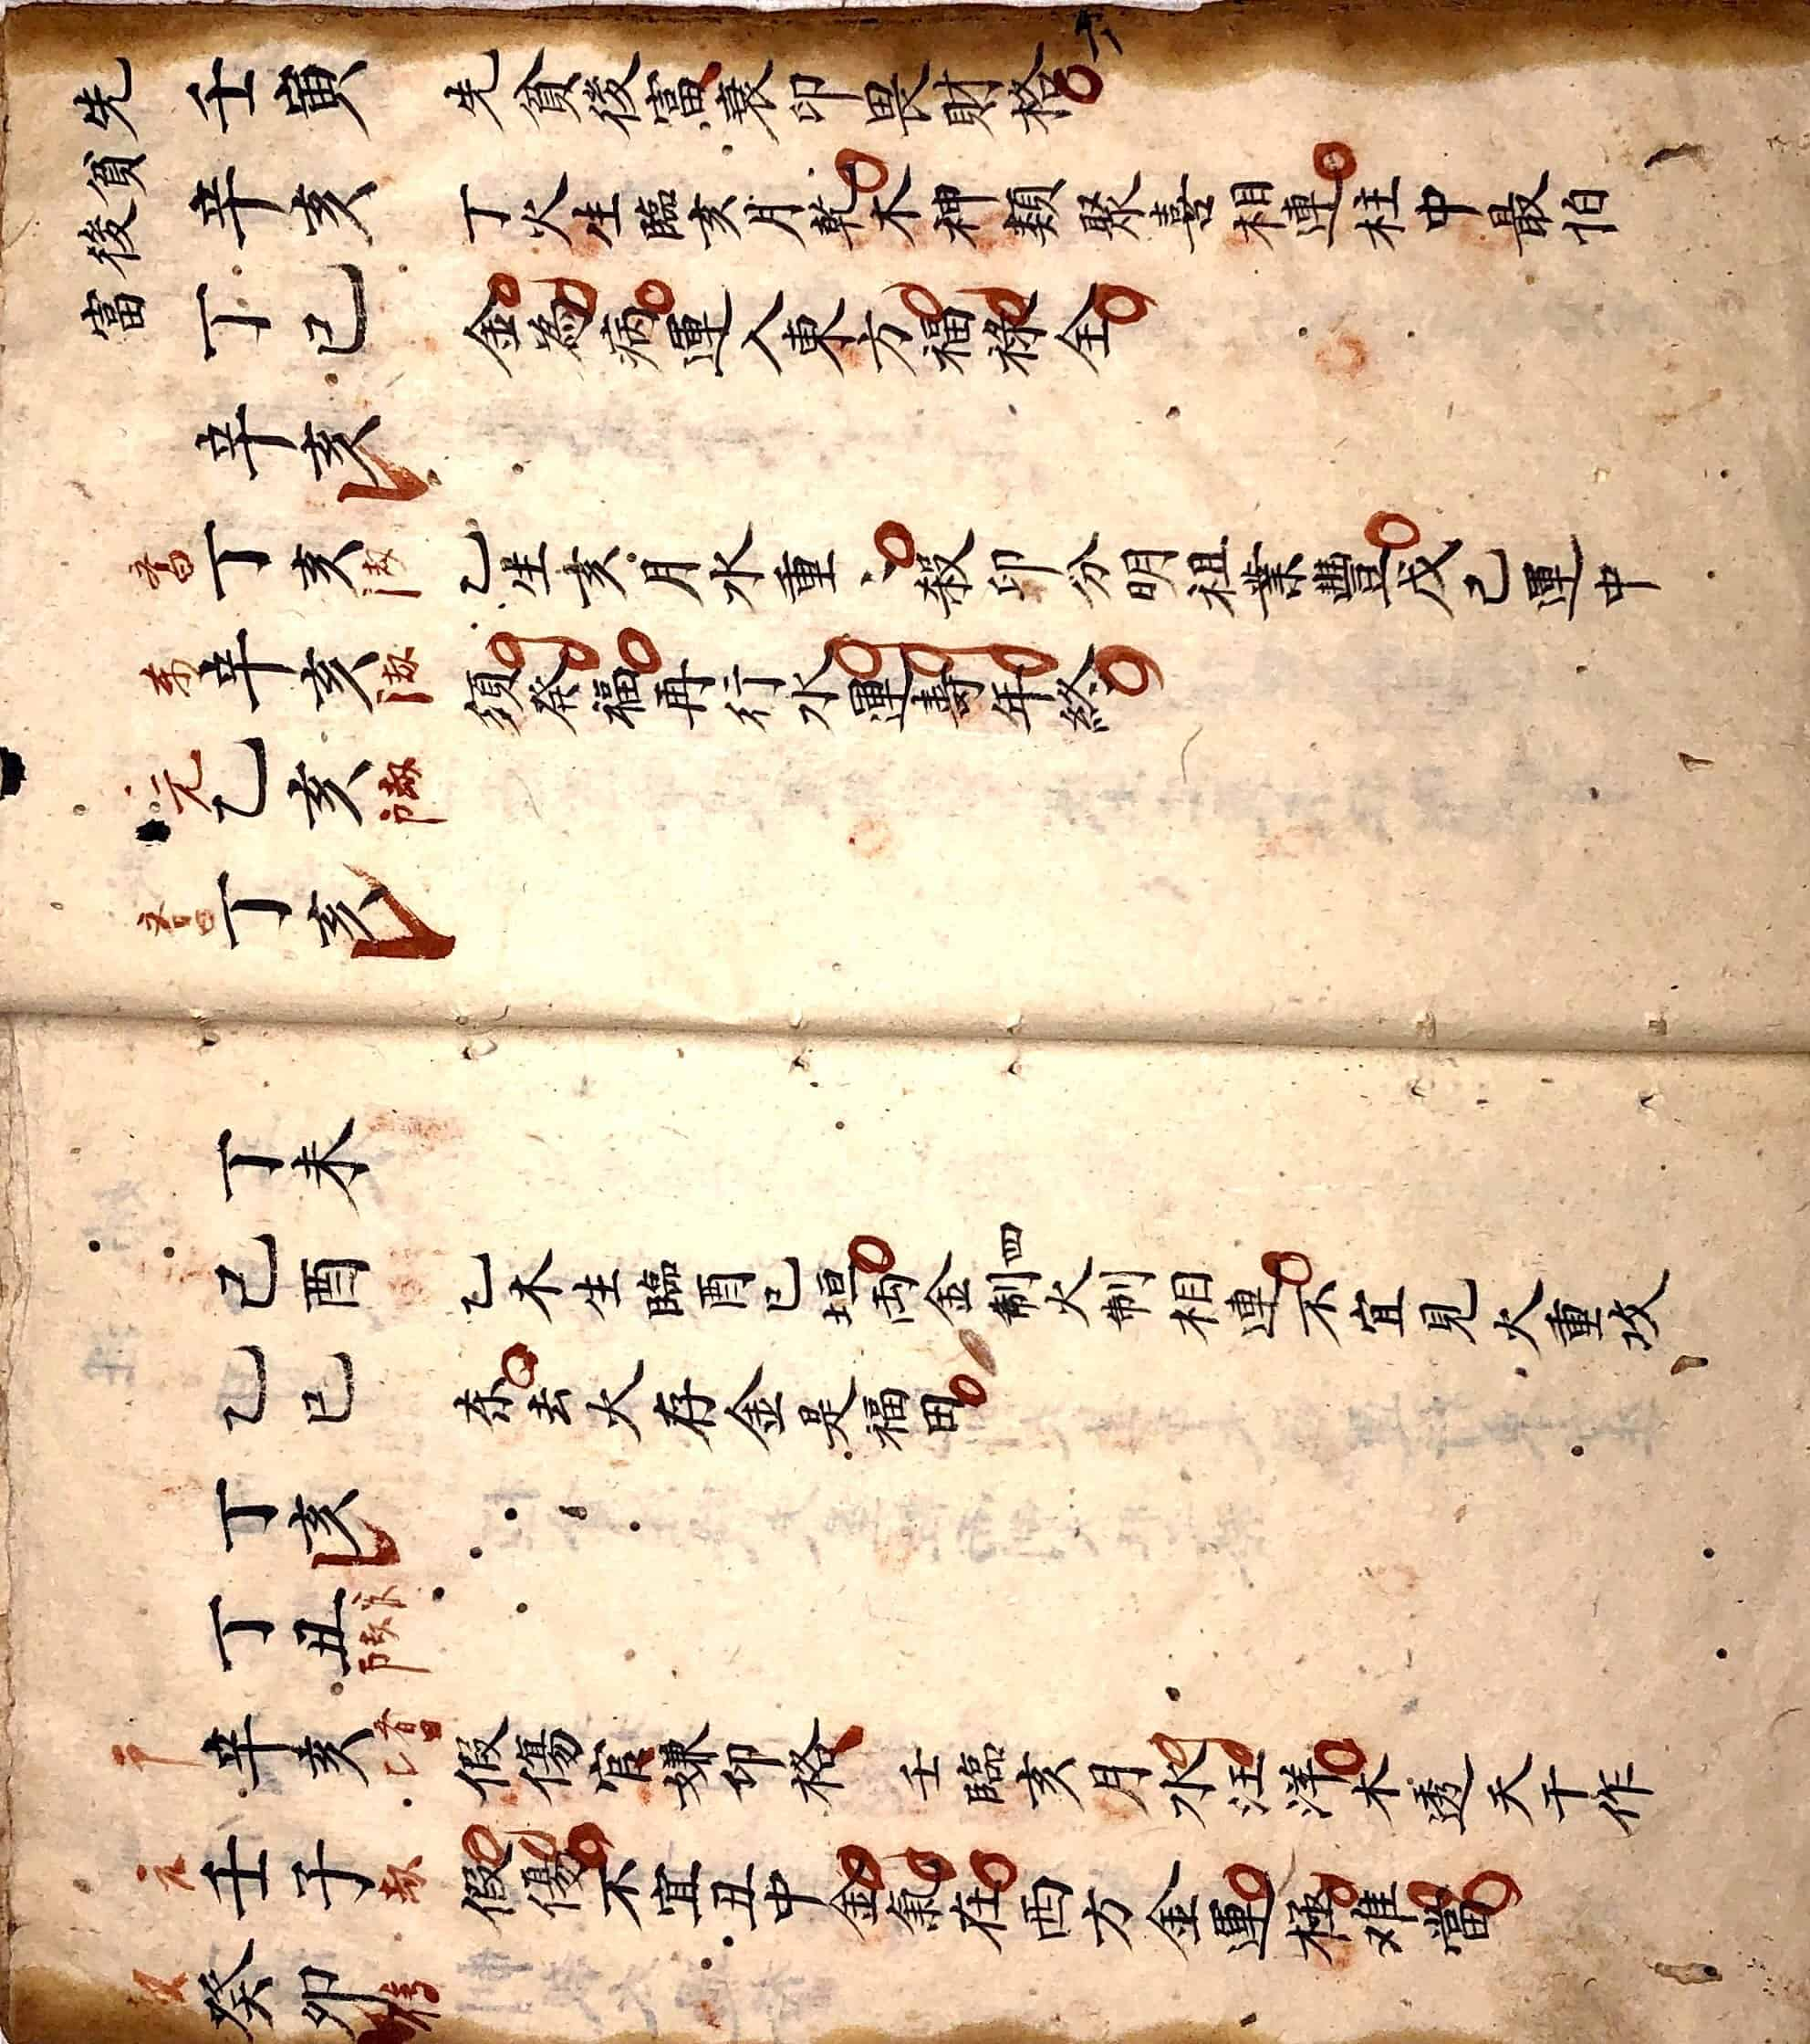 先貧後富
壬寅 先貧後富衰印畏財格
辛亥 丁火生臨亥月乾木神類聚喜相連柱中最怕
丁巳 金為病運入東方福祿全
辛亥
丁亥 乙生亥月水重〻殺印分明祖業豐戊己運中
辛亥 須發福再行水運壽年終
元 乙亥
丁亥
丁未
己酉 乙木生臨酉巳垣両金制四火制相連不宜見火重攻
乙巳 去火存金是福田
丁亥
丁丑
辛亥 假傷官嫌印格 壬臨亥月水汪洋木透天干作
元 壬子 假傷不宜丑中金氣在西方金運極难當
癸卯